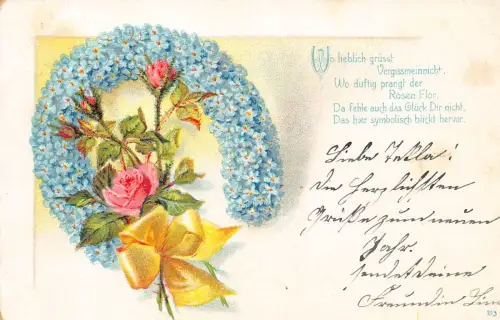 Wo lieblich grüsst
Vergissmeinnicht,
Wo duftig prangt der
Rosen Flor,
Da fehle auch das Glück Dir nicht,
Das hier symbolisch blickt hervor.
Liebe Tekla!
Die herzlichsten
Grüße zum neuen
Jahr.
sendet deine
Freundin